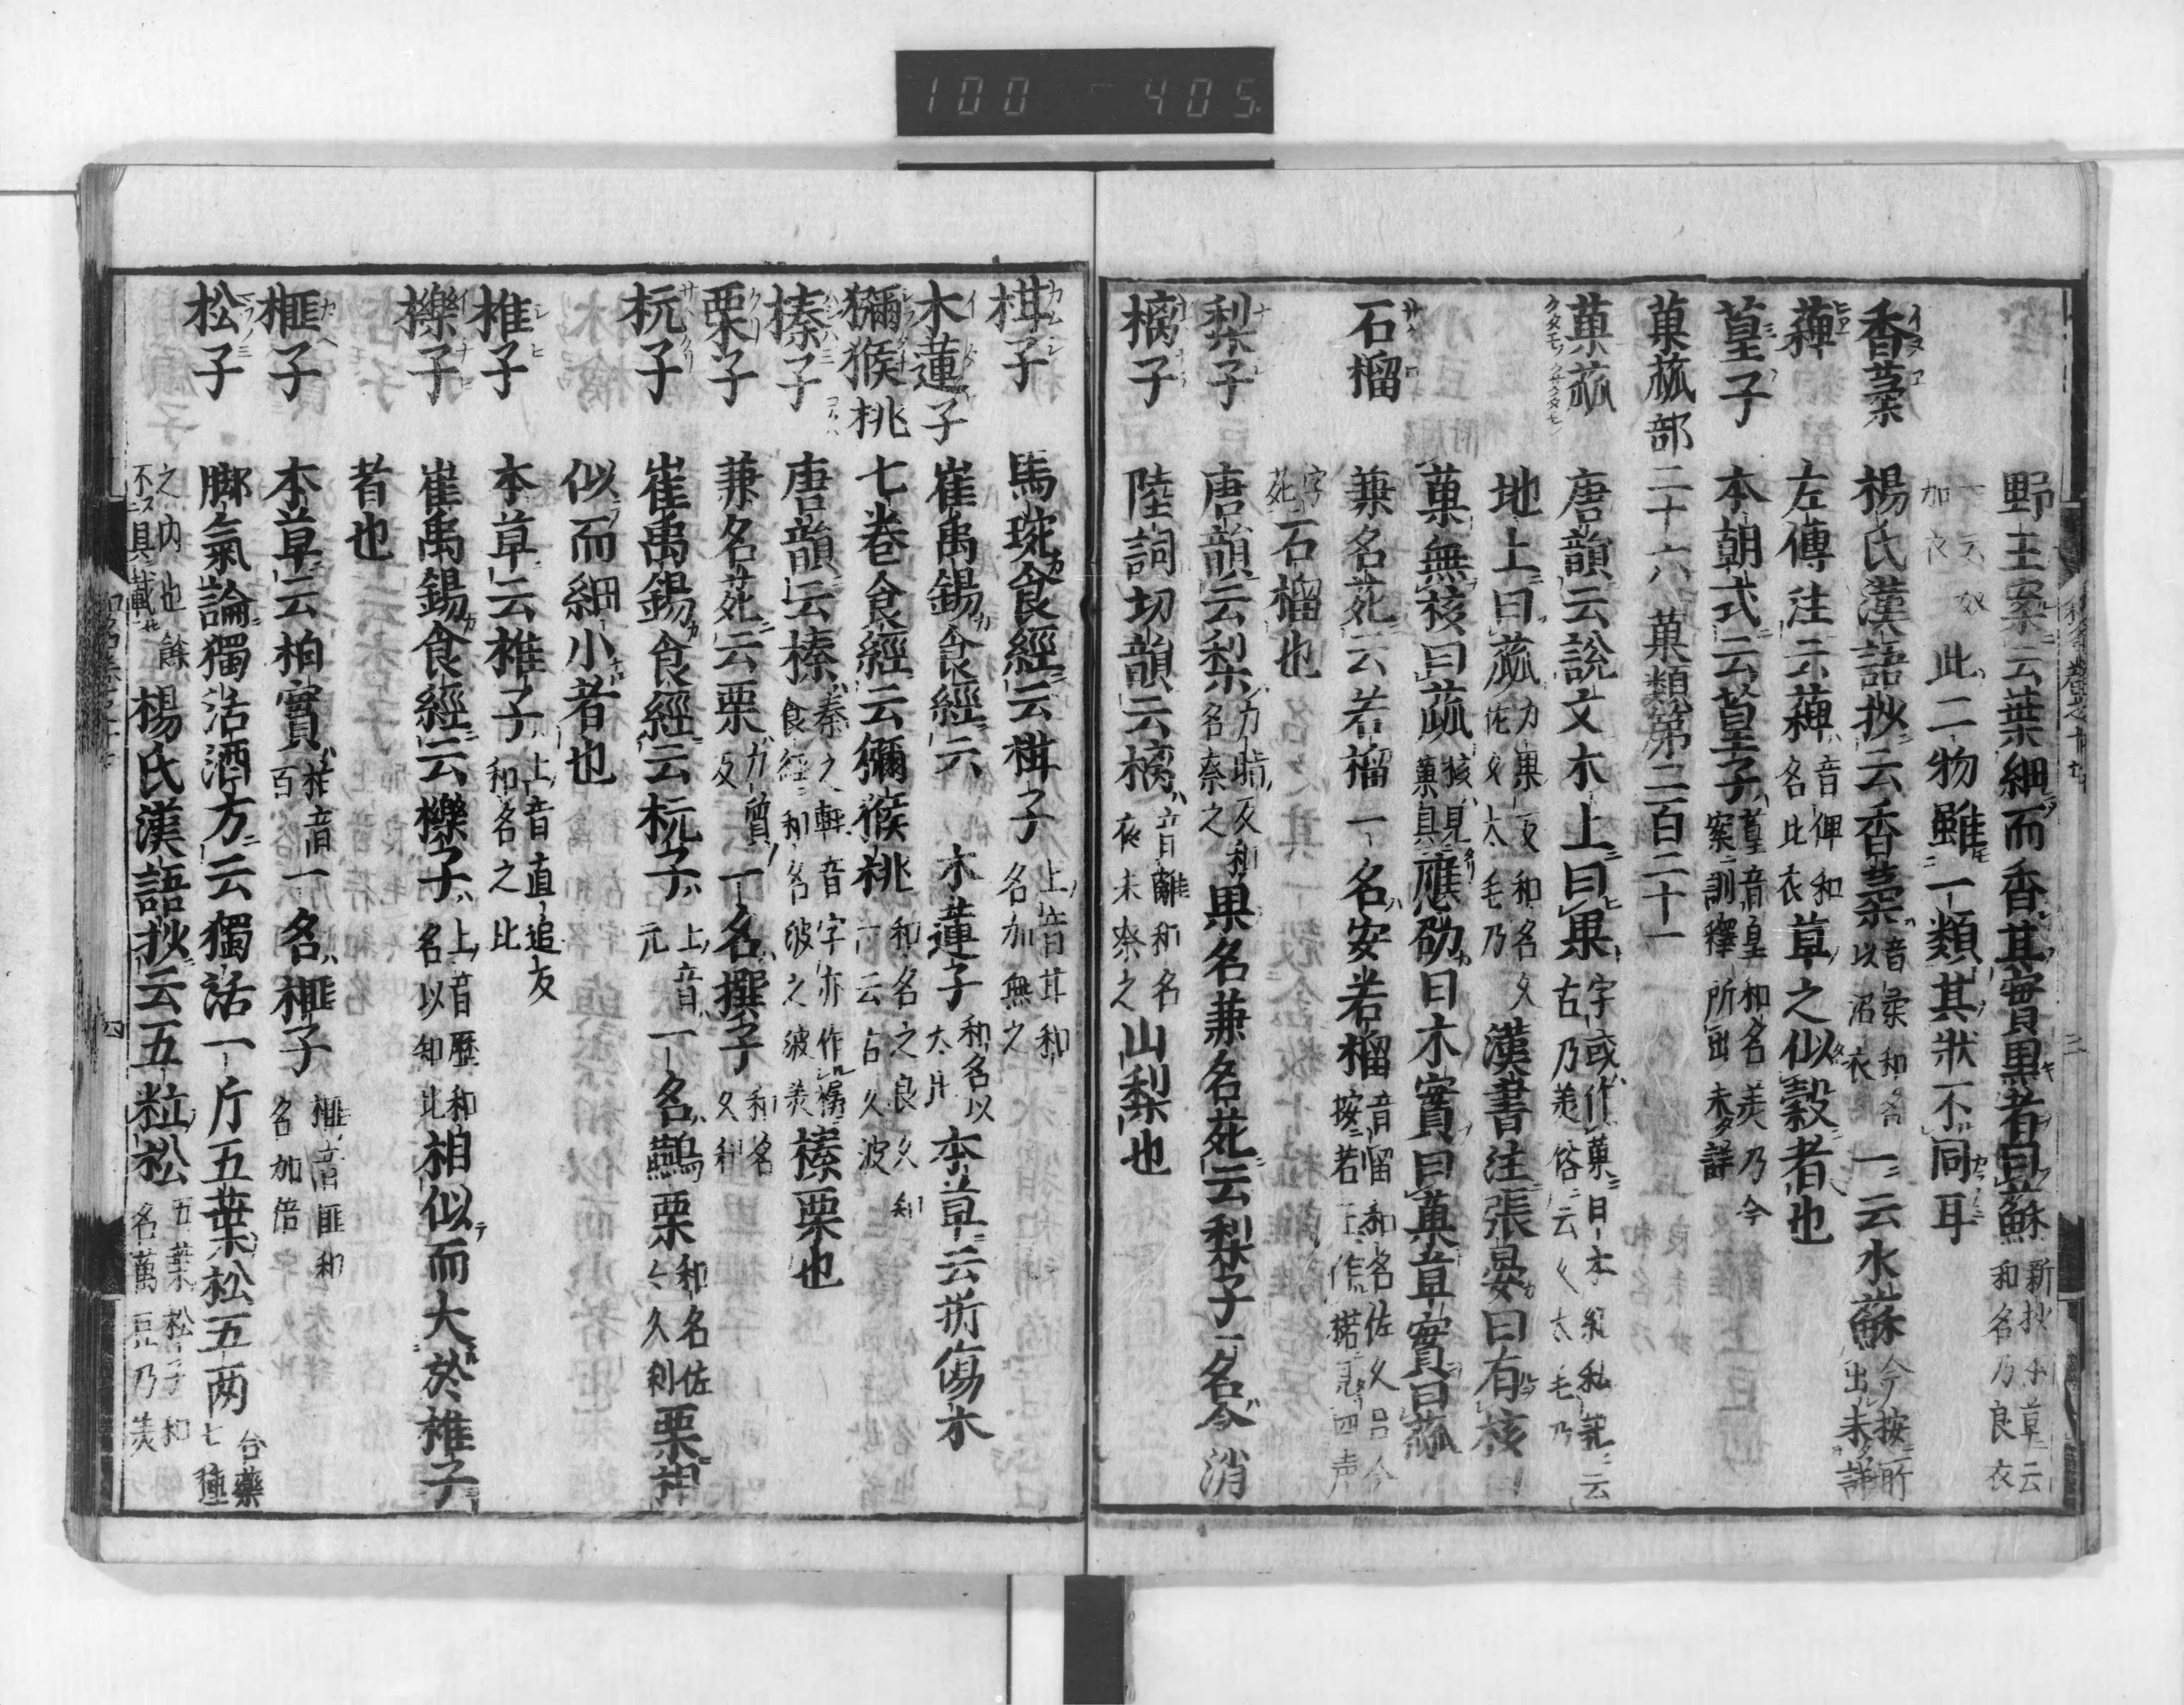 100 405
野王案云葉細而香其實黒者曰蘇 新抄本草云和名乃良衣
一云奴加衣 此二物雖一類其狀不同耳
香葇 楊氏漢語抄云香葇 音柔和名以沼衣 一云水蘇 今按所出未詳
薭 左傳注云薭 音俾和名比衣 草之似穀者也
葟子 本朝式云葟子 葟音皇和名美乃今案訓釋所出未詳
菓蓏部二十六 菓類第二百二十一
菓蓏 唐韻云説文木上曰果 字或作菓日本紀私記云古乃美俗云久太毛乃
地上曰蓏 力果反和名久佐久太毛乃 漢書注張晏曰有核曰
菓無核曰蓏 核見菓具 應劭曰木實曰菓草實曰蓏
石榴 兼名苑云若榴一名安若榴 音留和名佐久呂今按若正作楉見四声
字苑 石榴也
梨子 唐韻云梨 力脂反和名奈之 果名兼名苑云梨子一名含消
樆子 陸詞切韻云樆 音離和名夜末奈之 山梨也
棋子 馬琬食經云棋子 上音其和名加無之
木蓮子 崔禹錫食經云木蓮子 和名以太比 本草云折傷木
獼猴桃 七巻食經云獼猴桃 和名之良久知一云古久波
榛子 唐韻云榛 秦之軒音字亦作樼食經和名波之波美 榛栗也
栗子 兼名苑云栗 力質反 一名撰子 和名久利
杬子 崔禹錫食經云杬子 上音元 一名鷰栗 和名佐々久利 栗相
似而細小者也
椎子 本草云椎子 上音直追反和名之比
櫟子 崔禹錫食經云櫟子 上音歴和名以知比 相似而大於椎子
者也
榧子 本草云柏實 柏音百 一名榧子 榧音匪和名加倍
松子 脚氣論獨活酒方云獨活一斤五葉松五兩 合藥七種
之内也餘不具載 楊氏漢語抄云五粒松 五葉松子和名萬豆乃美
四